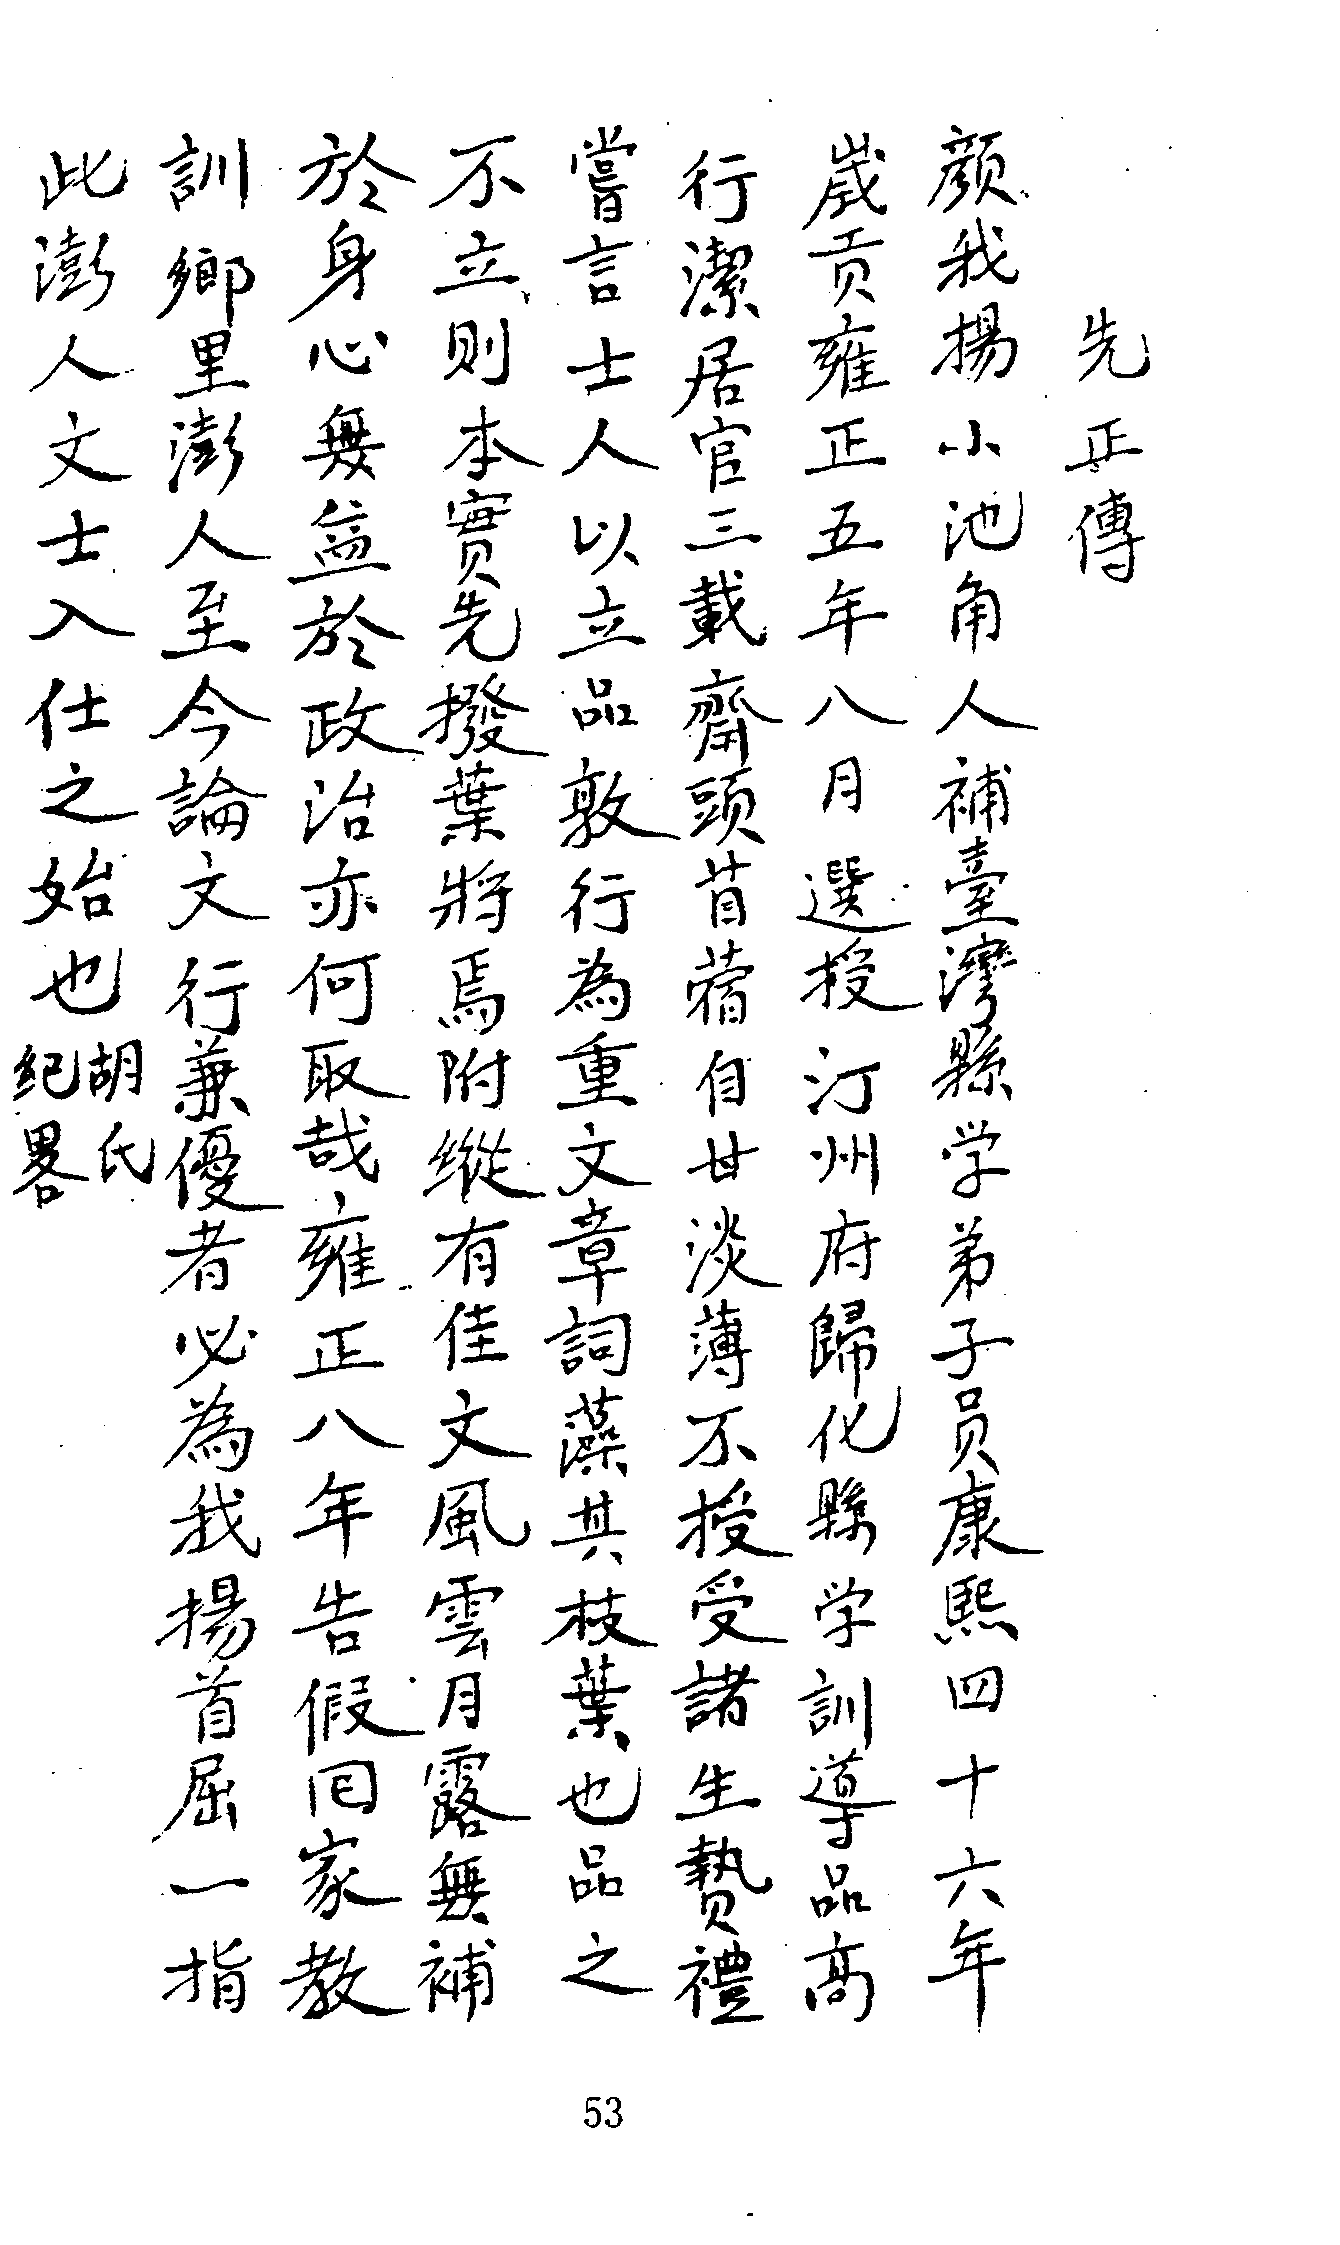 先正傳
顏我揚小池角人補臺灣縣学弟子员康熙四十六年
歲贡雍正五年八月選授汀州府歸化縣学訓導品高
行潔居官三載齋頭苜蓿自甘淡薄不授受諸生贄禮
嘗言士人以立品敦行為重文章詞藻其枝葉也品之
不立則本實先撥葉將焉附縱有佳文風雲月露無補
於身心無益於政治亦何取哉雍正八年告假囘家教
訓鄉里澎人至今論文行兼優者必為我揚首屈一指
此澎人文士入仕之始也胡氏
紀畧
53